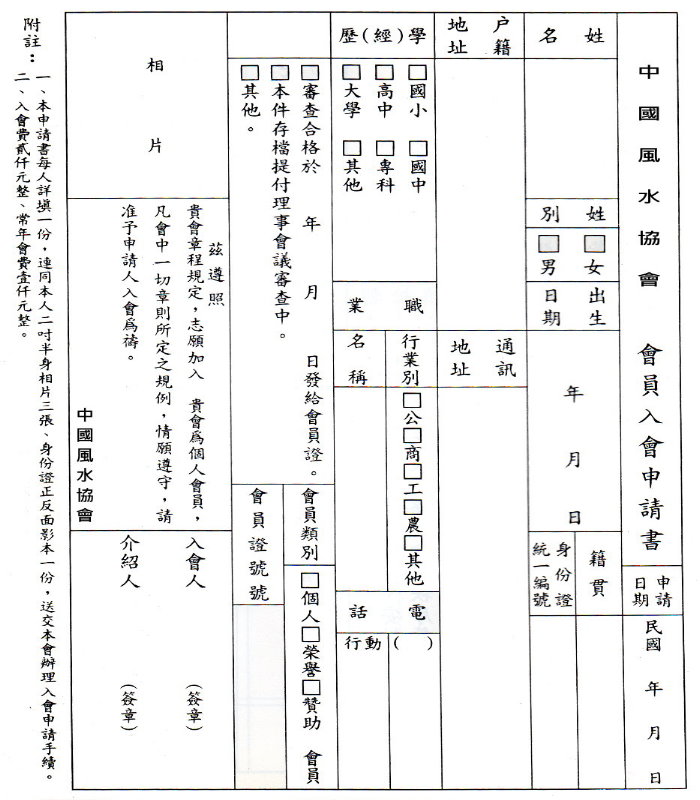 中國風水協會 會員入會申請書
申請日期
民國 年 月 日
姓名
姓別
□女
□男
出生日期
年 月 日
籍貫
身份證統一編號
户籍地址
通訊地址
學(經)歷
□國小 □國中
□高中 □專科
□大學 □其他
職業
行業別
□公□商□工□農□其他
名稱
電話
( )
行動
□審查合格於 年 月 日發給會員證。
□本件存檔提付理事會議審查中。
□其他。
會員類別
□個人□榮譽□贊助 會員
會員證號號
相片
茲遵照
貴會章程規定，志願加入 貴會爲個人會員，
凡會中一切章則所定之規例，情願遵守，請
准予申請人入會爲禱。
中國風水協會
入會人 (簽章)
介紹人 (簽章)
附註：
一、本申請書每人詳填一份，連同本人二吋半身相片三張、身份證正反面影本一份，送交本會辦理入會申請手續。
二、入會費貳仟元整、常年會費壹仟元整。